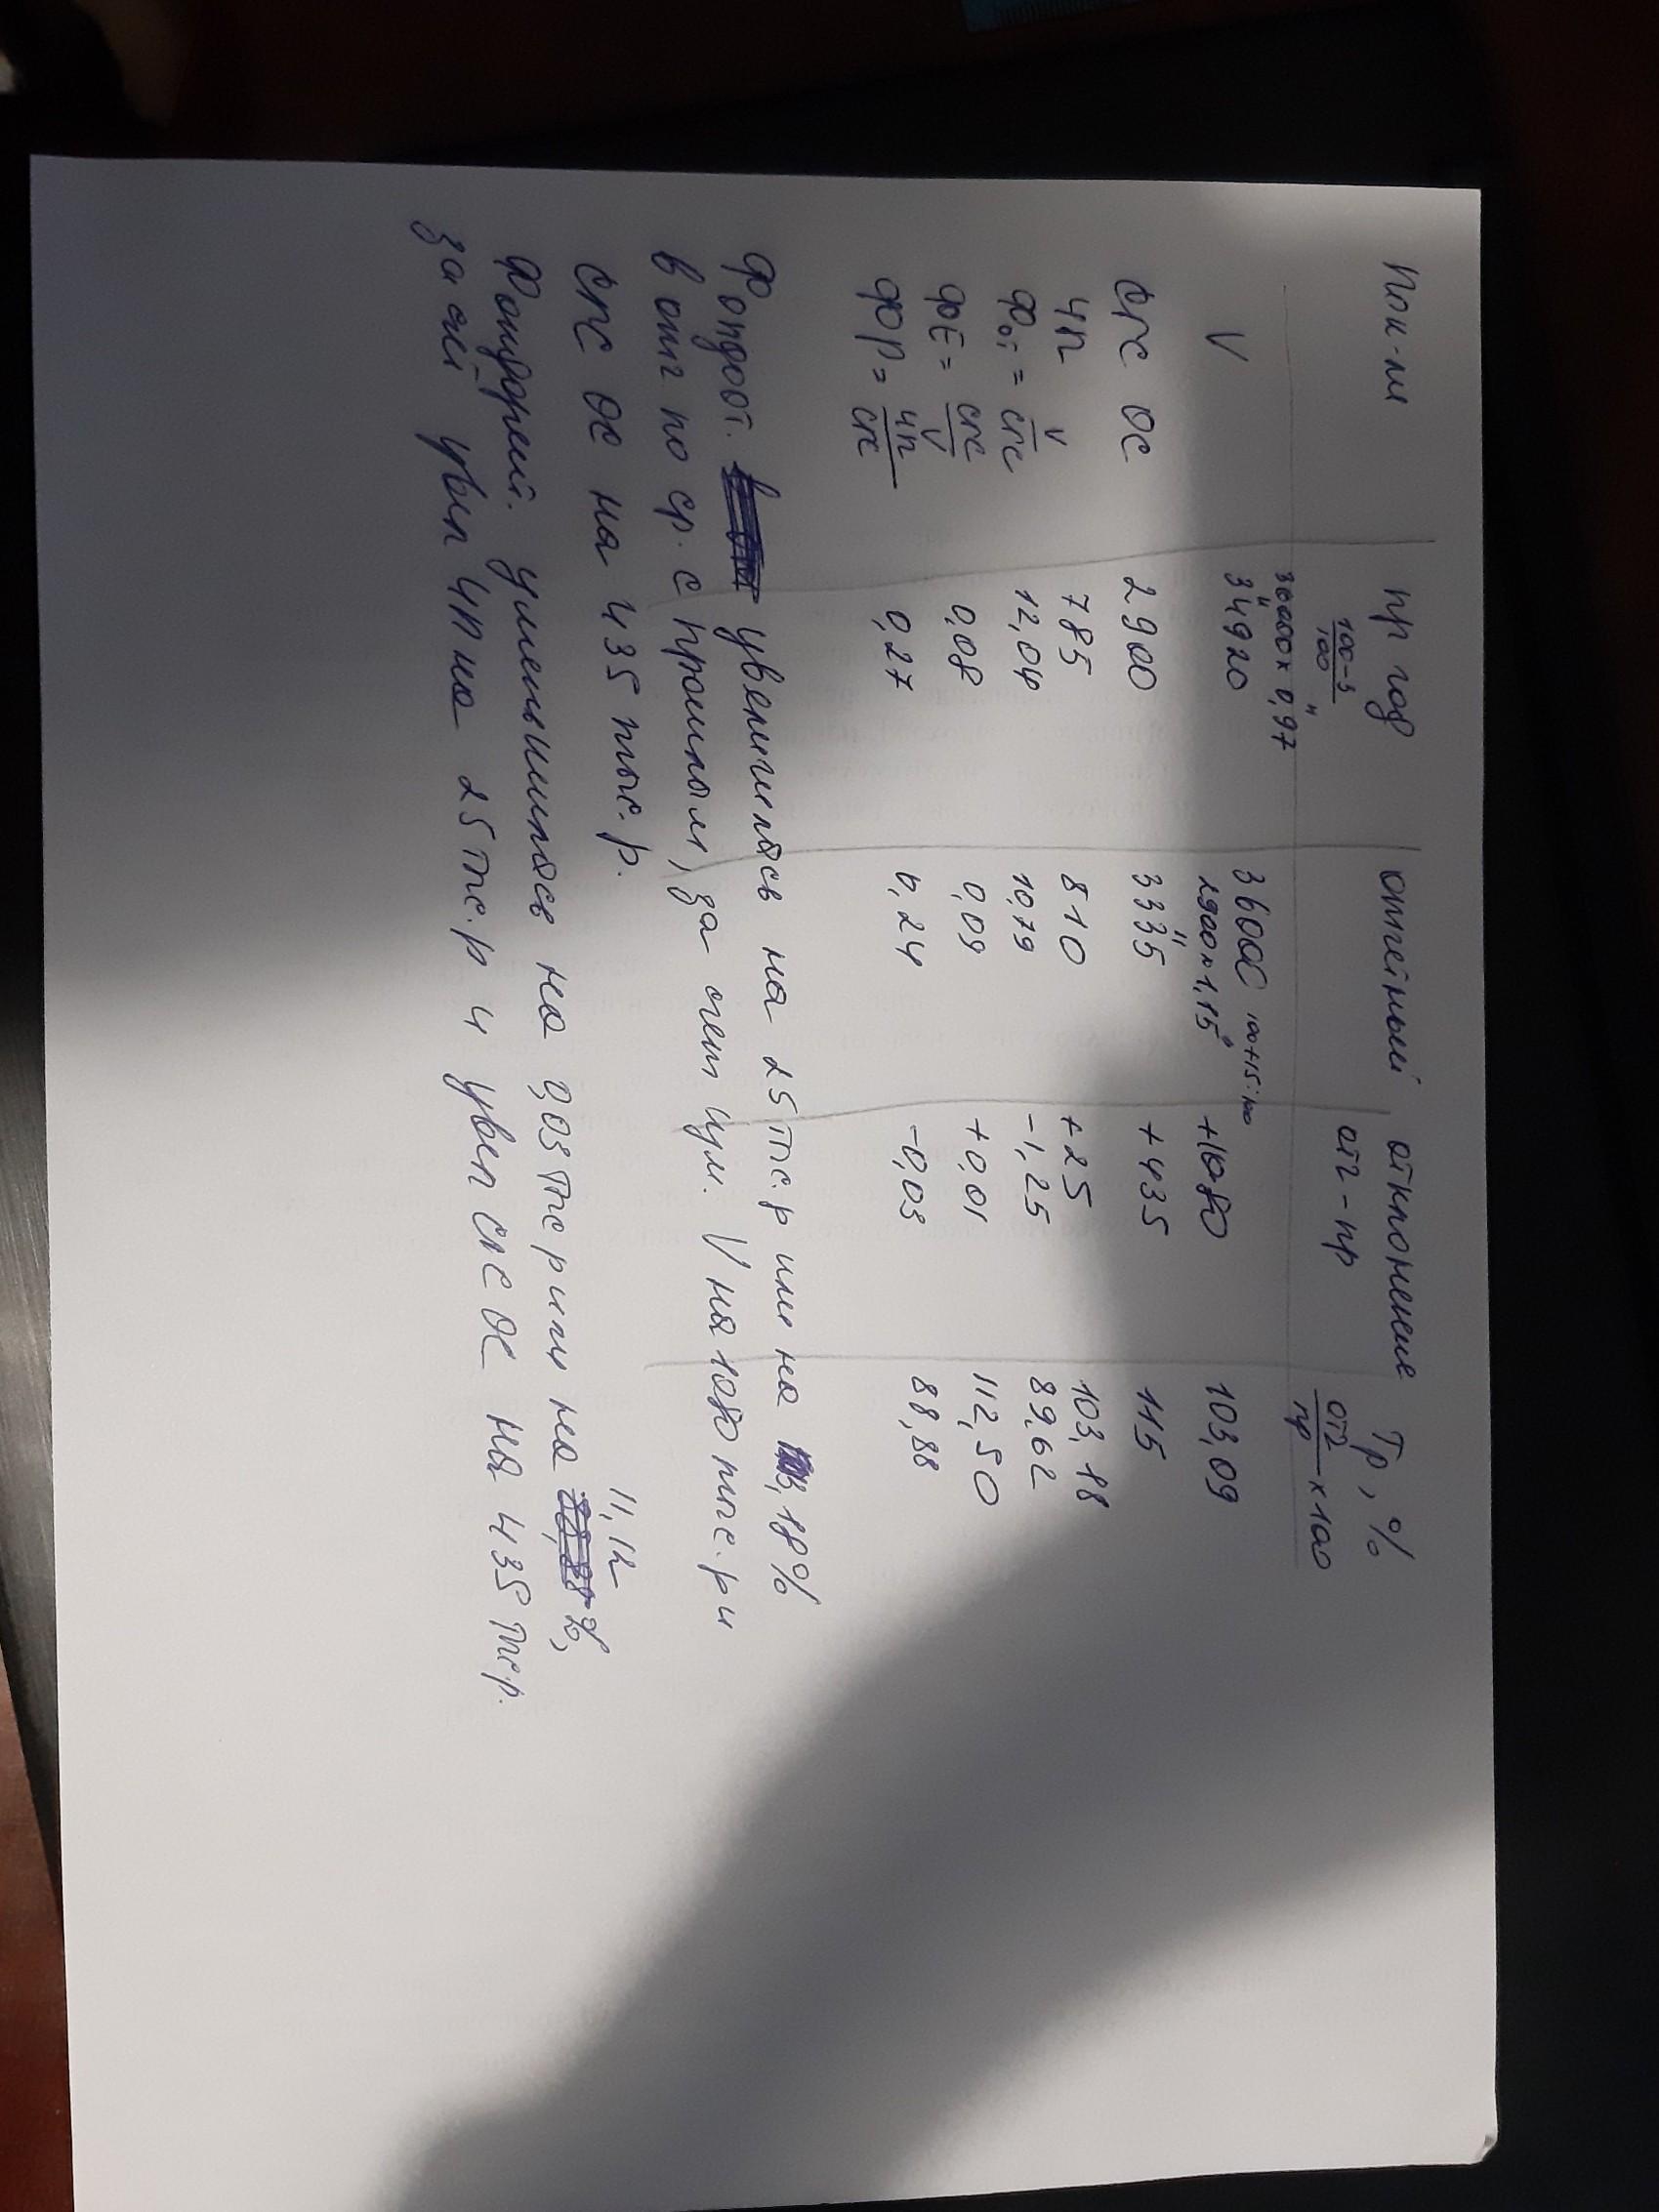 Пок-ли пр год отчетный отклонение Тр, %
100-3/100 отч-пр отч/пр х100
36000х0,97
V 34920 36000 100+15:100 +1080 103,09
2900х1,15
СГС ОС 2900 3335 +435 115
ЧП 785 810 +25 103,18
Фот = V/СГС 12,04 10,79 -1,25 89,62
ФЕ = СГС/V 0,08 0,09 +0,01 112,50
ФР = ЧП/СГС 0,27 0,24 -0,03 88,88
Фондоот. увеличилась на 25 тс.р или на 3,18%
в отч по ср. с прошлым, за счет изм. V на 1080 тыс.р и
СГС ОС на 435 тыс.р.
11,12
Фондорент. уменьшилась на 0,03 тс р или на %,
за счет увел ЧП на 25 тс.р и увел СГС ОС на 435 тс.р.